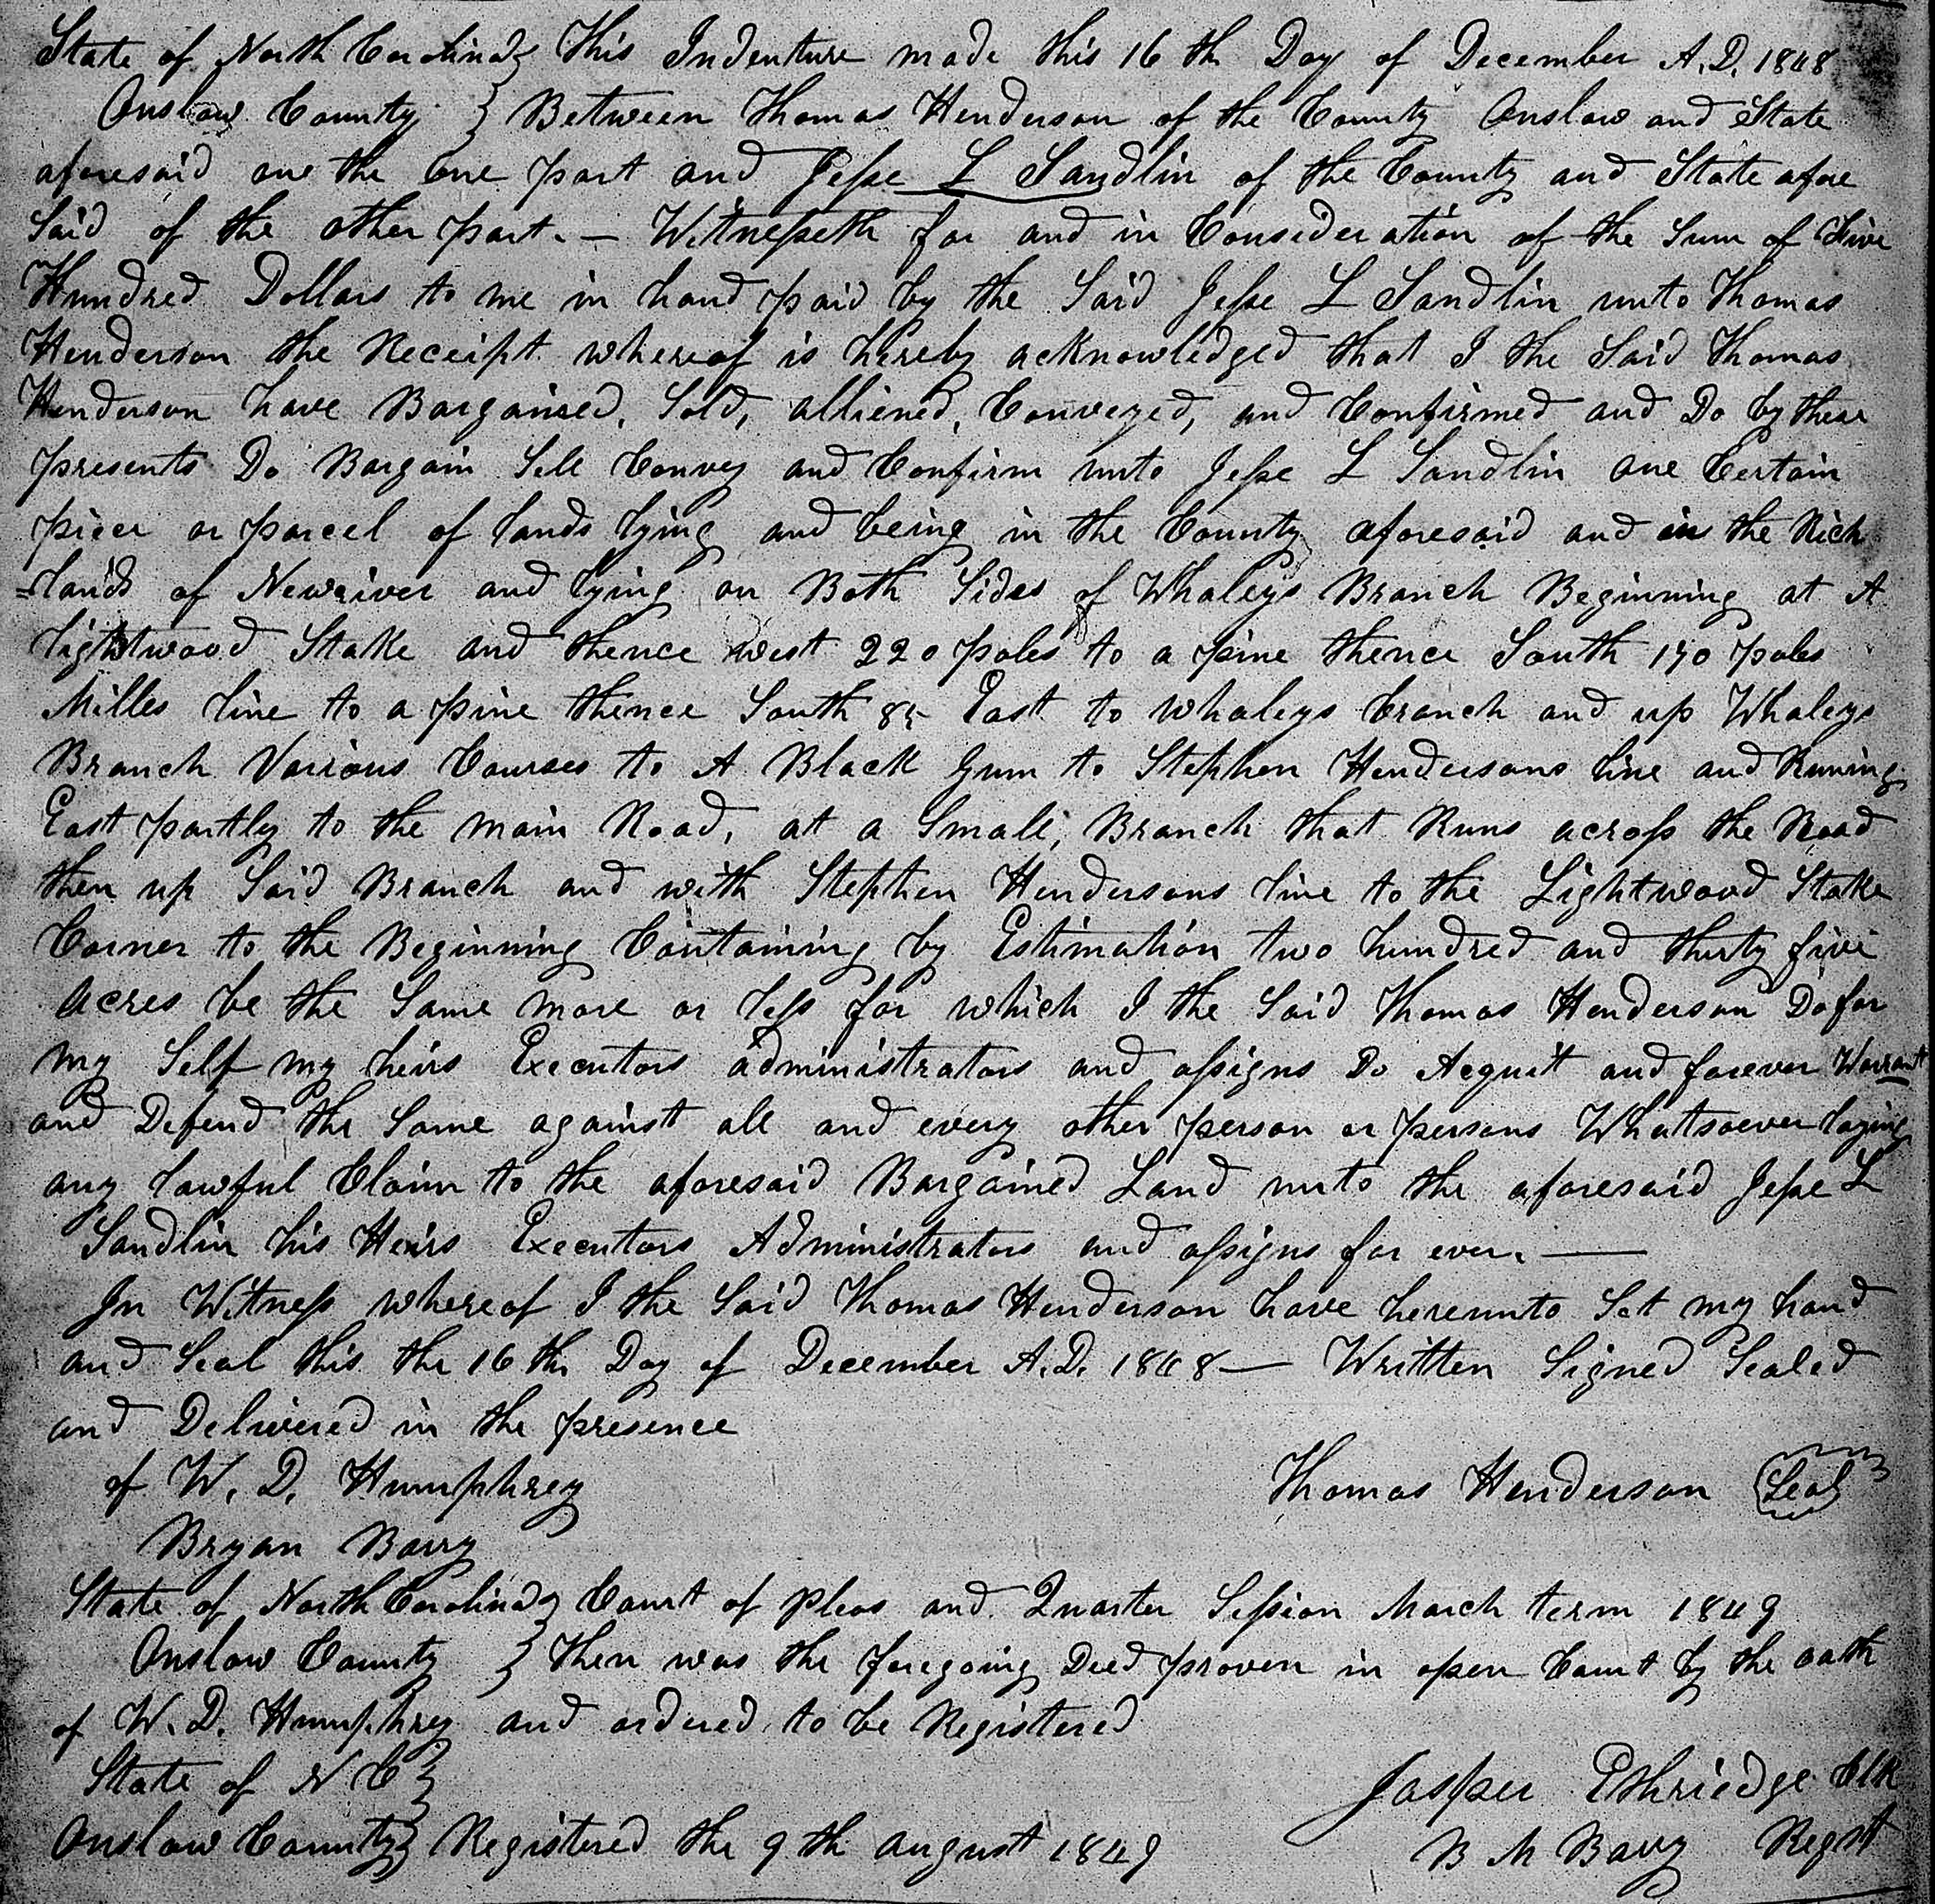 State of North Carolina } This Indenture made this 16 th Day of December A.D. 1848
Onslow County } Between Thomas Henderson of the County Onslow and State
aforesaid one the one part and Jesse L Sandlin of the County and State afore
Said of the other part. — Witnesseth for and in Consideration of the Sum of Five
Hundred Dollars to me in hand paid by the Said Jesse L Sandlin unto Thomas
Henderson the Receipt whereof is hereby acknowledged that I the Said Thomas
Henderson have Bargained, Sold, alliened, Conveyed, and Confirmed and Do by these
presents Do Bargain Sell Convey and Confirm unto Jesse L Sandlin one Certain
piece or parcel of lands lying and being in the County aforesaid and in the Rich
=lands of Newriver and lying on Both Sides of Whaleys Branch Beginning at A
lightwood Stake and thence west 220 poles to a pine thence South 190 poles
Milles line to a pine thence South 85 East to Whaleys branch and up Whaleys
Branch Various Courses to A Black Gum to Stephen Hendersons line and Runing
East partly to the main Road, at a Small, Branch that Runs across the Road
then up Said Branch and with Stephen Hendersons line to the Lightwood Stake
Corner to the Beginning Containing by Estimation two hundred and thirty five
acres be the Same more or less for which I the Said Thomas Henderson Do for
my Self my heirs Executors administrators and assigns Do Acquit and forever Warrant
and Defend the Same against all and every other person or persons Whattsoever laying
any lawful Claim to the aforesaid Bargained Land unto the aforesaid Jesse L
Sandlin his Heirs Executors Administrators and assigns for ever. —
In Witness whereof I the Said Thomas Henderson have hereunto Set my hand
and Seal this the 16 th Day of December A.D. 1848 — Written Signed Sealed
and Delivered in the presence
of W. D. Humphrey Thomas Henderson Seal
Bryan Barry
State of North Carolina } Court of Pleas and Quarter Session March term 1849
Onslow County } then was the foregoing Deed proven in open Court by the oath
of W. D. Humphrey and ordered to be Registered
State of N C } Jasper Ethriedge Clk
Onslow County } Registered the 9 th august 1849 B M Bavy Regst